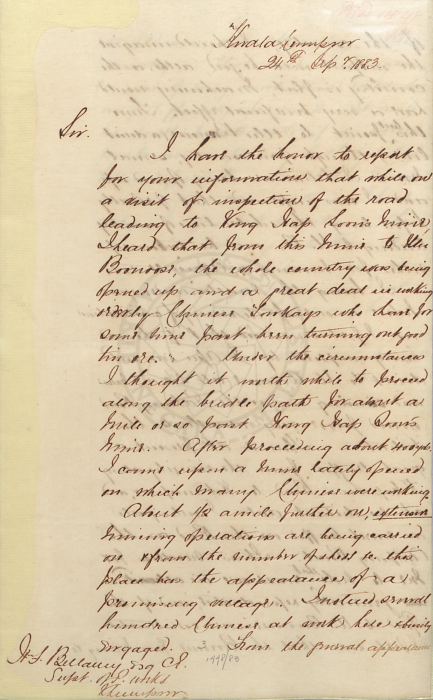 Kwala Lumpor
24th Apr. 1883.
Sir.
I have the honor to report
for your information that while on
a visit of inspection of the road
leading to Kong Hap Loon's Mine,
I heard that from this Mine to Ulu
the whole country was being
opened up and a great deal is working
by Chinese Towkays who have for
some time past been turning out good
tin ore. Under the circumstances
I thought it worth while to proceed
along the bridle path for about a
mile or so past Kong Hap Loon's
Mine. After proceeding about 400 yds.
I came upon a Mine lately opened
on which many Chinese were working.
About ½ a mile further on, extensive
mining operations are being carried
on & from the number of sheds &c this
place has the appearance of a
promising village. Instead several
hundred Chinese at work here & busily
engaged. From the general appearance
H. F. Bellamy Esq C.E.
Supt. of P. Works
K Lumpor
1498/83